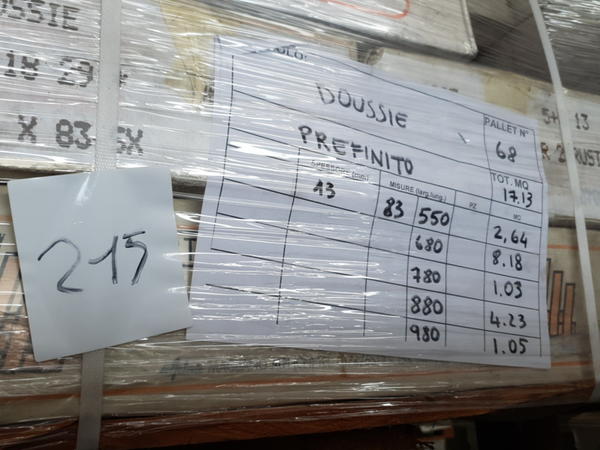 DOUSSIE
PALLET N°
68
PREFINITO
TOT. MQ
17.13
SPESSORE (mm.) MISURE (larg.lung.) PZ MQ
13 83 550 2,64
680 8.18
780 1.03
880 4.23
980 1.05
215
SSIE
18 29
X 83
5+ 13